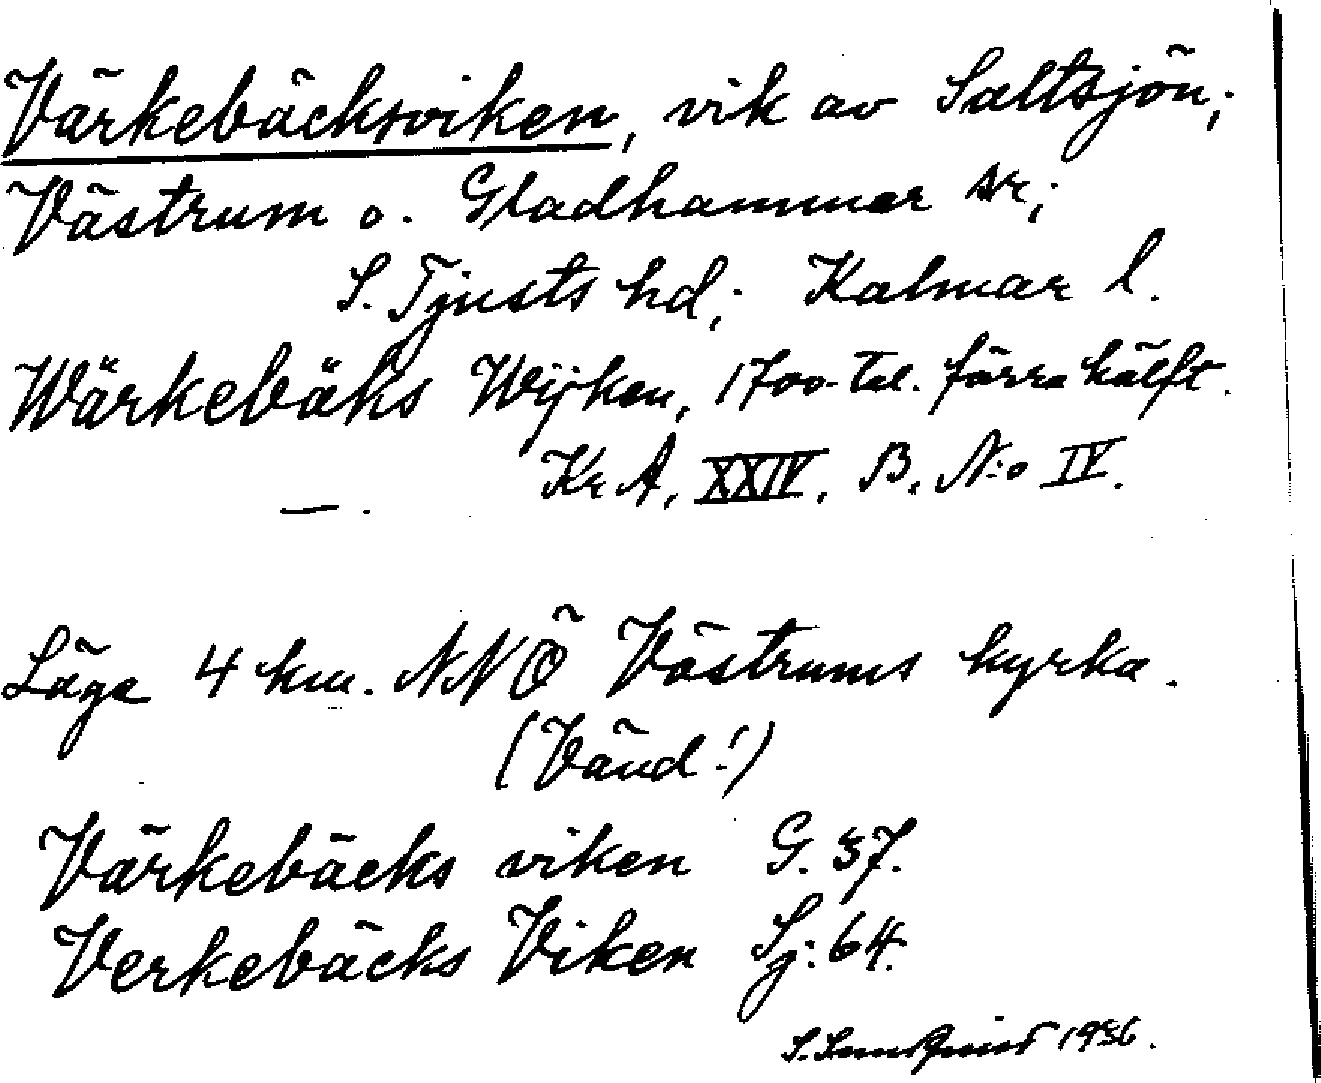 Värkebäcksviken, vik av Saltsjön;
Västrum o. Gladhammar sr;
S. Tjusts hd; Kalmar l.
Wärkebäks Wijken, 1700-tal. förra hälft.
Kr A, XXIV, B. N:o IV.
— .
Läge 4 km. NNÖ Västrums kyrka.
(Vänd!)
Värkebäcks viken G. 57.
Verkebäcks Viken Sj: 64.
S. 1936.